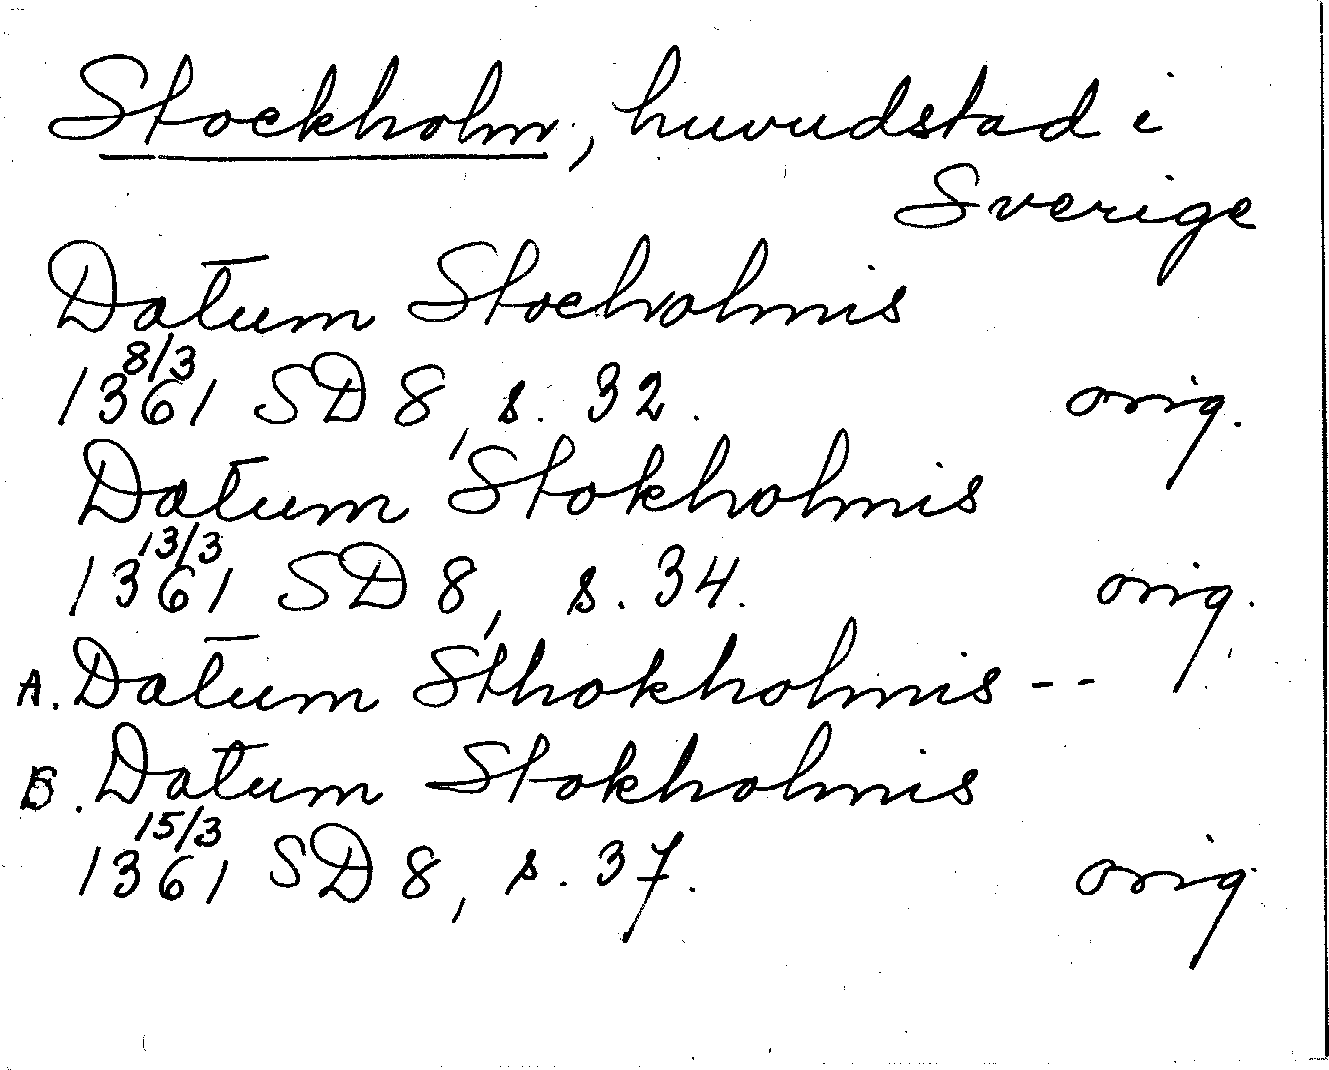 Stockholm, huvudstad i
Sverige
Datum Stocholmis
8/3
1361 SD 8, s. 32. orig.
Datum Stokholmis
13/3
1361 SD 8, s. 34. orig.
A. Datum Sthokholmis --
B. Datum Stokholmis
15/3
1361 SD 8, s. 37. orig